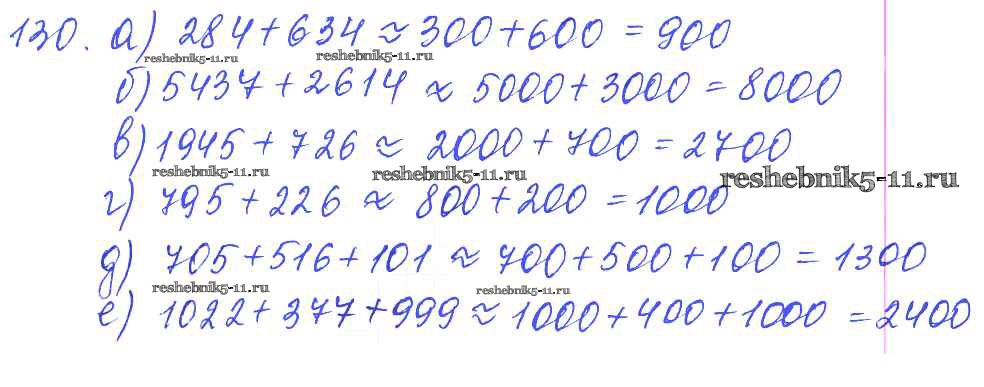 130. а) 284+634 ≈ 300+600 = 900
reshebnik5-11.ru reshebnik5-11.ru
б) 5437+2614 ≈ 5000+3000 = 8000
в) 1945+726 ≈ 2000+700 = 2700
reshebnik5-11.ru reshebnik5-11.ru reshebnik5-11.ru
г) 795+226 ≈ 800+200 = 1000
д) 705+516+101 ≈ 700+500+100 = 1300
reshebnik5-11.ru reshebnik5-11.ru
е) 1022+377+999 ≈ 1000+400+1000 = 2400